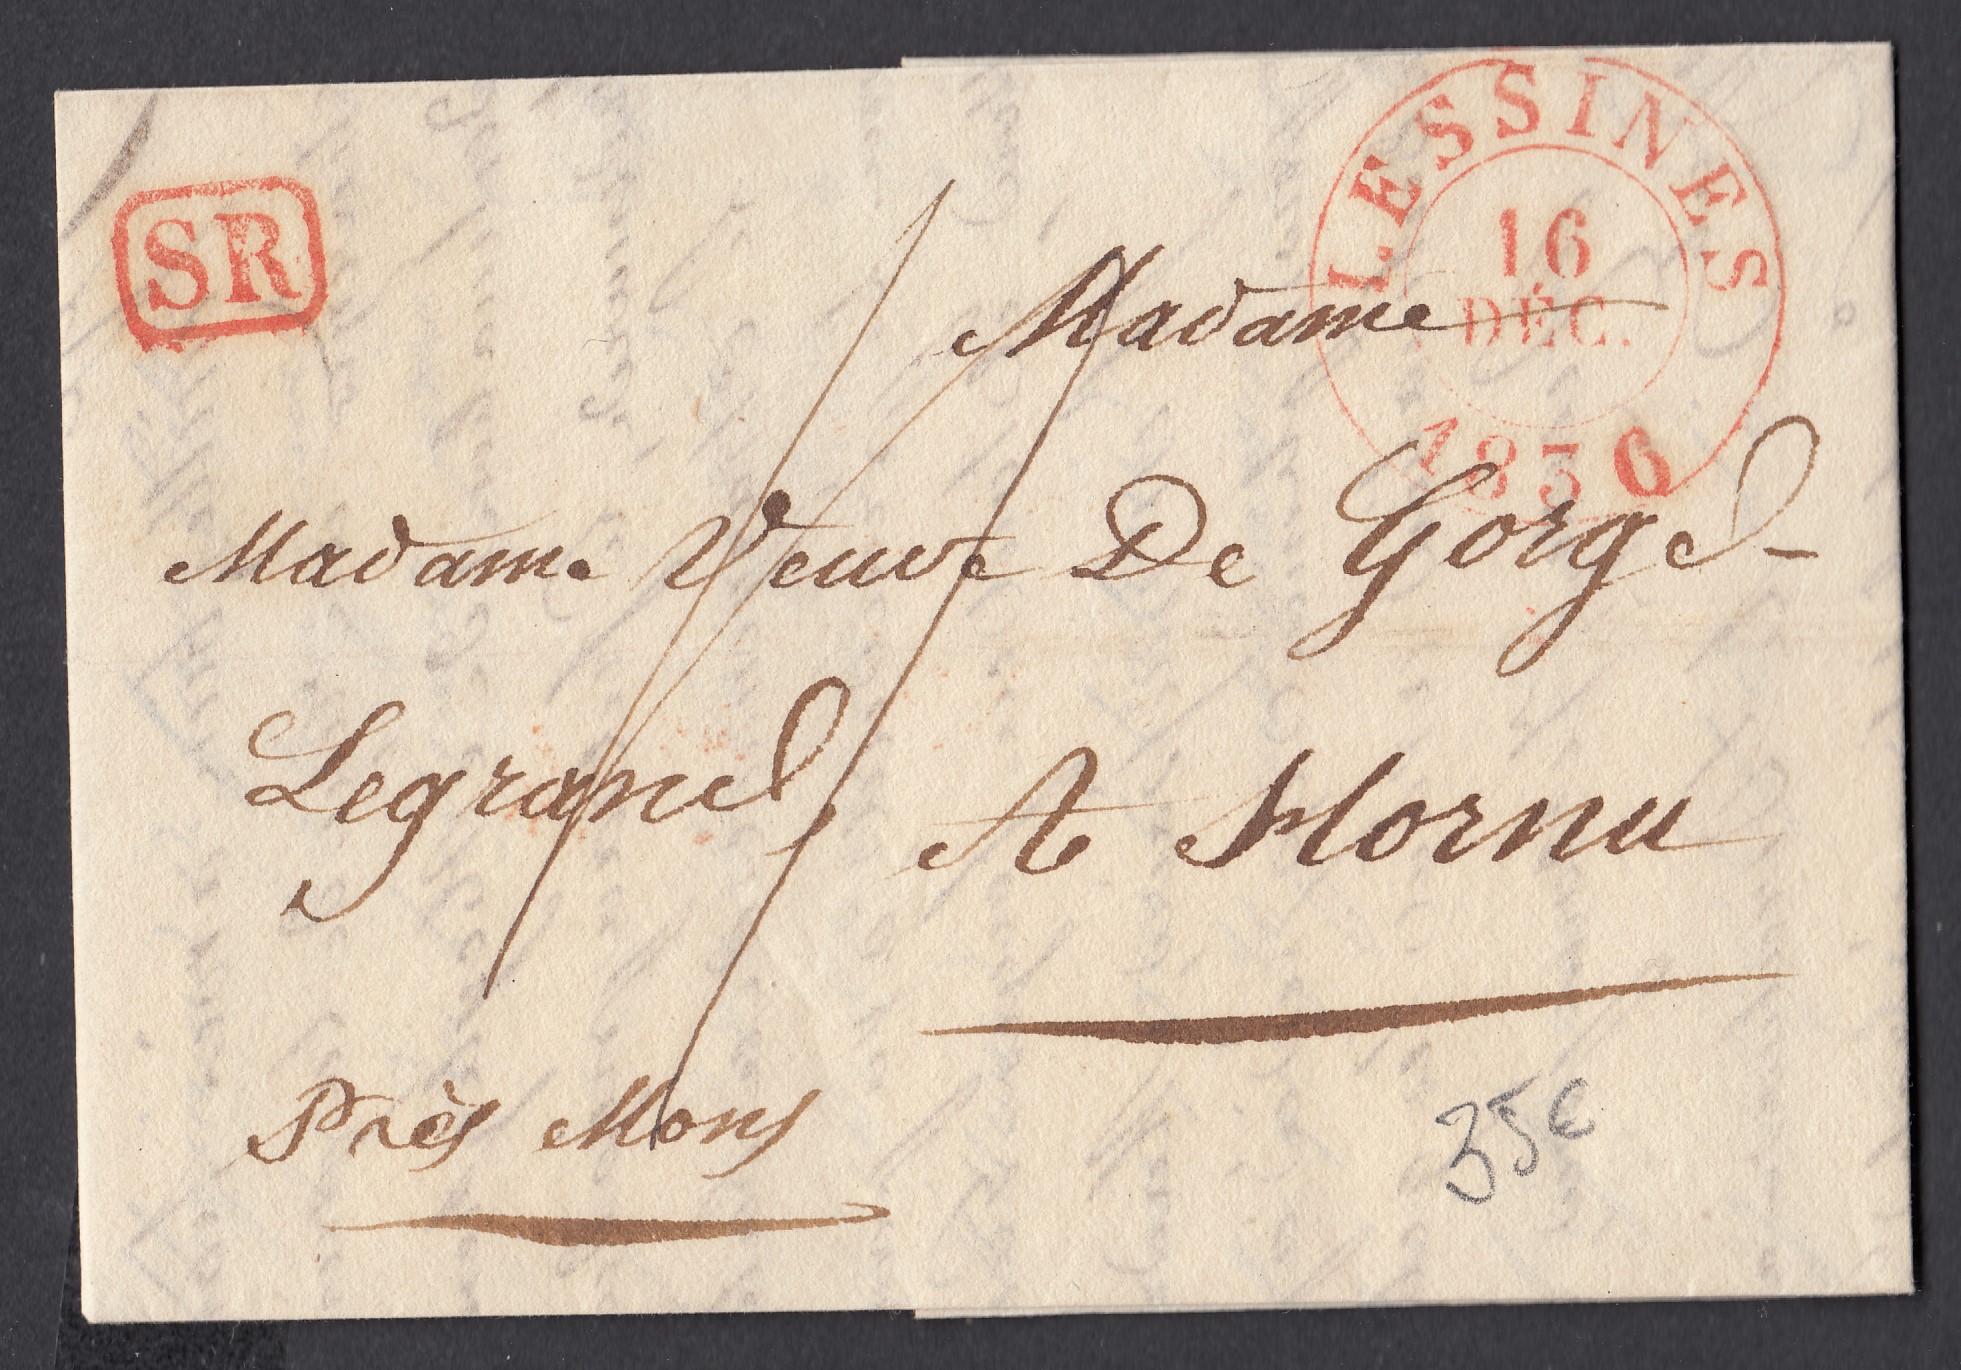 LESSINES
16
DÉC.
1836
SR
Madame
Madame Veuve De Gorge
Legrand, A Hornu
Près Mons
35€